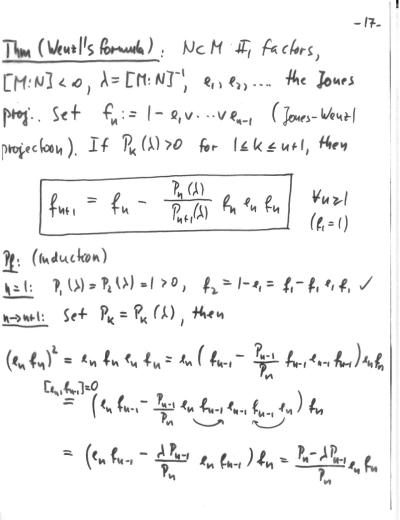 -17-
Thm (Wenzl's formula): N⊂M II₁ factors,
[M:N]<∞, λ=[M:N]⁻¹, e₁,e₂,.... the Jones
proj.. Set fₙ := 1-e₁∨...∨eₙ₋₁ (Jones-Wenzl
projection). If Pₖ(λ)>0 for 1≤k≤n+1, then
fₙ₊₁ = fₙ - Pₙ(λ)/Pₙ₊₁(λ) fₙ eₙ fₙ ∀n≥1
(f₁=1)
Pf: (induction)
n=1: P₁(λ)=P₂(λ)=1>0, f₂=1-e₁=f₁-f₁e₁f₁ ✓
n→n+1: Set Pₖ=Pₖ(λ), then
(eₙfₙ)² = eₙfₙeₙfₙ = eₙ(fₙ₋₁ - Pₙ₋₁/Pₙ fₙ₋₁eₙ₋₁fₙ₋₁)eₙfₙ
[eₙ,fₙ₋₁]=0
= (eₙfₙ₋₁ - Pₙ₋₁/Pₙ eₙfₙ₋₁eₙ₋₁fₙ₋₁eₙ)fₙ
= (eₙfₙ₋₁ - λPₙ₋₁/Pₙ eₙfₙ₋₁)fₙ = Pₙ-λPₙ₋₁/Pₙ eₙfₙ